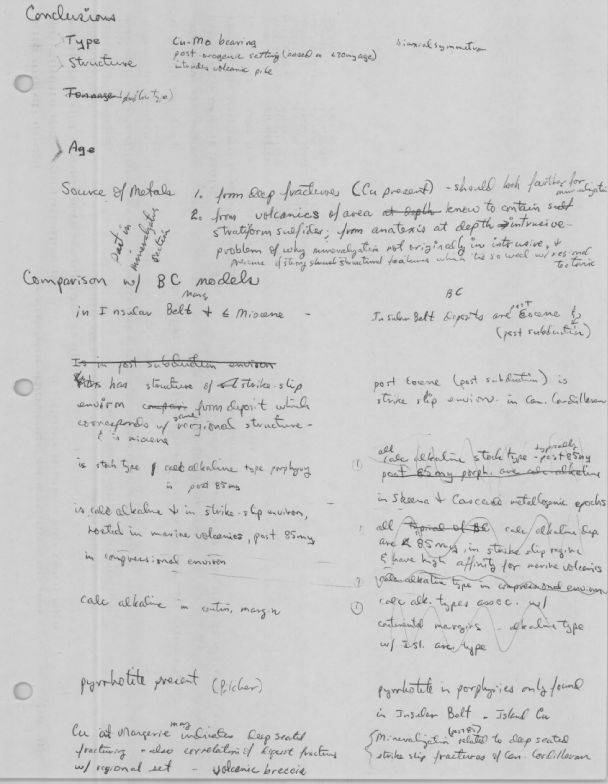 Conclusions
Type Cu-Mo bearing
Structure post orogenic setting (based on age)
intrudes volcanic pipe
Tonnage (type)
Age
Source of Metals 1. from deep fractures (Cu present) - should look farther for mineralization
2. from volcanics of area at depth know to contain
stratiform sulfides; from anatexis at depth intrusive.
problem of why mineralization not originally in intrusive, &
presence of strong structural features which tie so well w/ regional
tectonic
Put in mineralization section
Comparison w/ BC models
in Insular Belt + ≤ Miocene -
BC
Insular Belt deposits are post Eocene &
(post subduction)
Is in post subduction environ
has structure of strike-slip
environ from deposit which
corresponds w/ same regional structure -
& is miocene
post Eocene (post subduction) is
strike slip environ. in Can. Cordilleran
is stock type calc alkaline type porphyry
is post 85my
all calc alkaline stock type - typically post 85my
post 85my porph. are calc alkaline
in Skeena & Cascade metallogenic epochs
is calc alkaline & in strike-slip environ,
hosted in marine volcanics, post 85my
in compressional environ
all typical of BC calc alkaline dep
are < 85my, in strike slip regime
& have high affinity for marine volcanics
calc alkaline type in compressional environ
calc alkaline in contin. margin
calc alk. types assoc. w/
continental margins - alkaline type
w/ Isl. arc type
pyrrhotite present (Pilcher)
pyrrhotite in porphyries only found
in Insular Belt - Island Cu
Cu at Margerie may indicates deep seated
fracturing - also correlation of deposit fractures
w/ regional set - volcanic breccia
Mineralization (post 85) related to deep seated
strike slip fractures of Can. Cordilleran